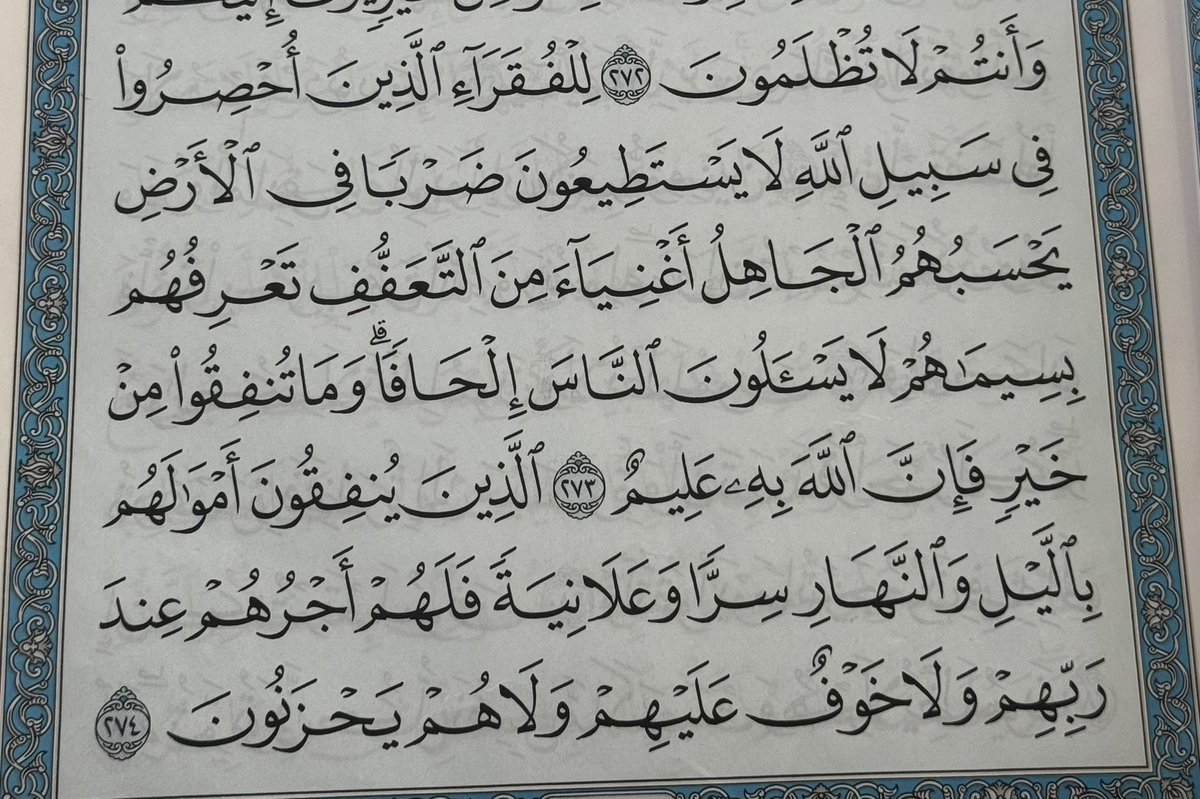 وَأَنتُمْ لَا تُظْلَمُونَ ٢٧٢ لِلْفُقَرَآءِ ٱلَّذِينَ أُحْصِرُوا۟
فِى سَبِيلِ ٱللَّهِ لَا يَسْتَطِيعُونَ ضَرْبًا فِى ٱلْأَرْضِ
يَحْسَبُهُمُ ٱلْجَاهِلُ أَغْنِيَآءَ مِنَ ٱلتَّعَفُّفِ تَعْرِفُهُم
بِسِيمَٰهُمْ لَا يَسْـَٔلُونَ ٱلنَّاسَ إِلْحَافًا ۗ وَمَا تُنفِقُوا۟ مِنْ
خَيْرٍ فَإِنَّ ٱللَّهَ بِهِۦ عَلِيمٌ ٢٧٣ ٱلَّذِينَ يُنفِقُونَ أَمْوَٰلَهُم
بِٱلَّيْلِ وَٱلنَّهَارِ سِرًّا وَعَلَانِيَةً فَلَهُمْ أَجْرُهُمْ عِندَ
رَبِّهِمْ وَلَا خَوْفٌ عَلَيْهِمْ وَلَا هُمْ يَحْزَنُونَ ٢٧٤